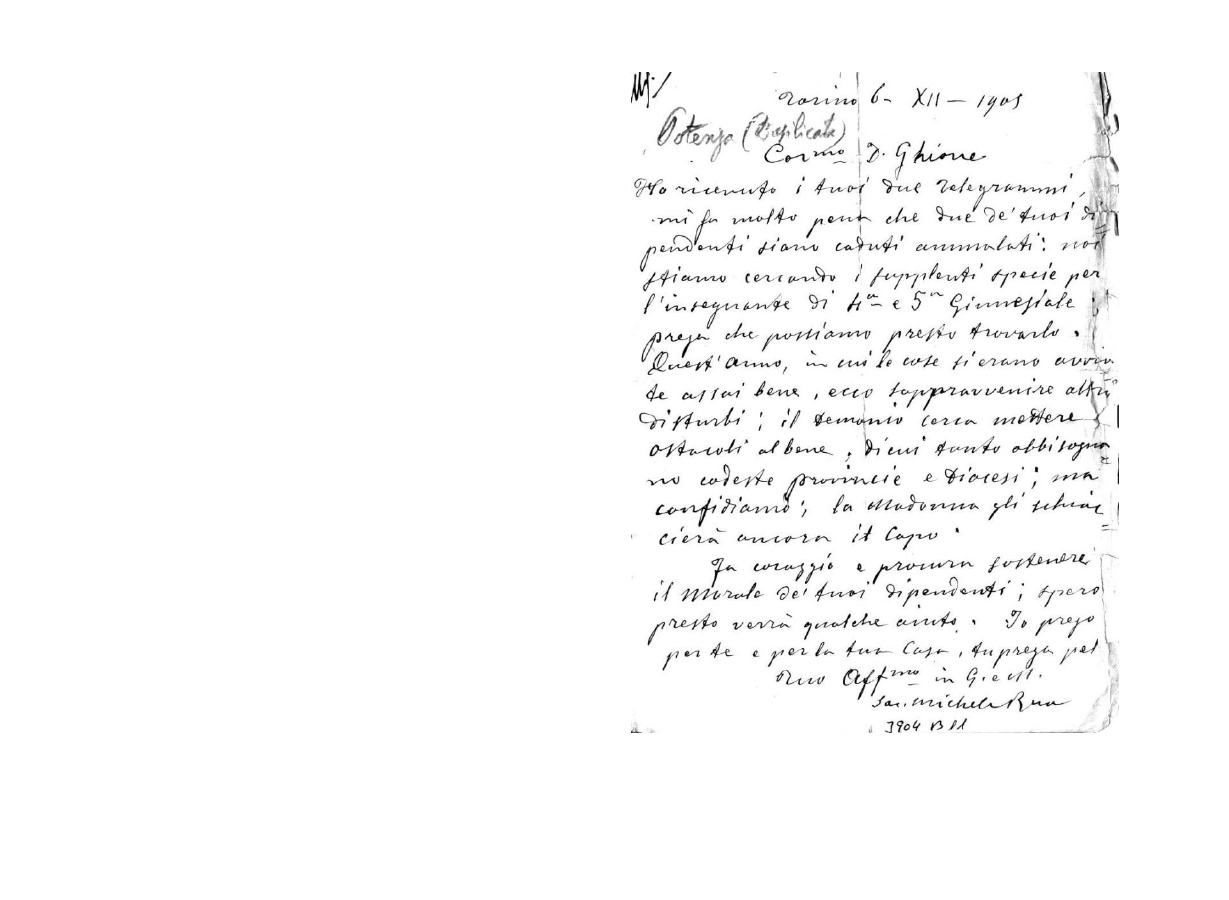 Torino 6 - XII - 1905
Potenza (Basilicata)
Car.mo D. Ghione
Ho ricevuto i tuoi due telegrammi,
mi fa molto pena che due de' tuoi di
pendenti siano caduti ammalati: noi
stiamo cercando i supplenti specie per
l'insegnante di 4a e 5a Ginnasiale;
prega che possiamo presto trovarlo.
Quest'anno, in cui le cose si erano avvia
te assai bene, ecco sopravvenire altri
disturbi; il demonio cerca mettere
ostacoli al bene, di cui tanto abbisogna
no codeste provincie e Diocesi; ma
confidiamo; la Madonna gli schiac
cierà ancora il Capo.
Fa coraggio e procura sostenere
il morale de' tuoi dipendenti; spero
presto verrà qualche aiuto. Io prego
per te e per la tua Casa, tu prega pel
Tuo Aff.mo in G. e M.
Sac. Michele Rua
3904 B 11